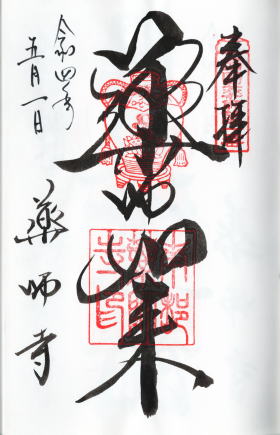 奉拝
薬師如来
令和四年
五月一日
薬師寺